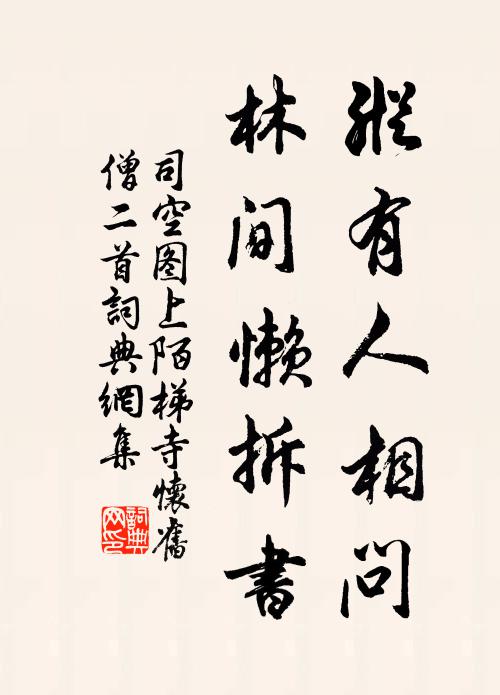 縱有人相問
林间懒拆書
司空图上陌梯寺懷舊
僧二首詞典網集
詞典
网印